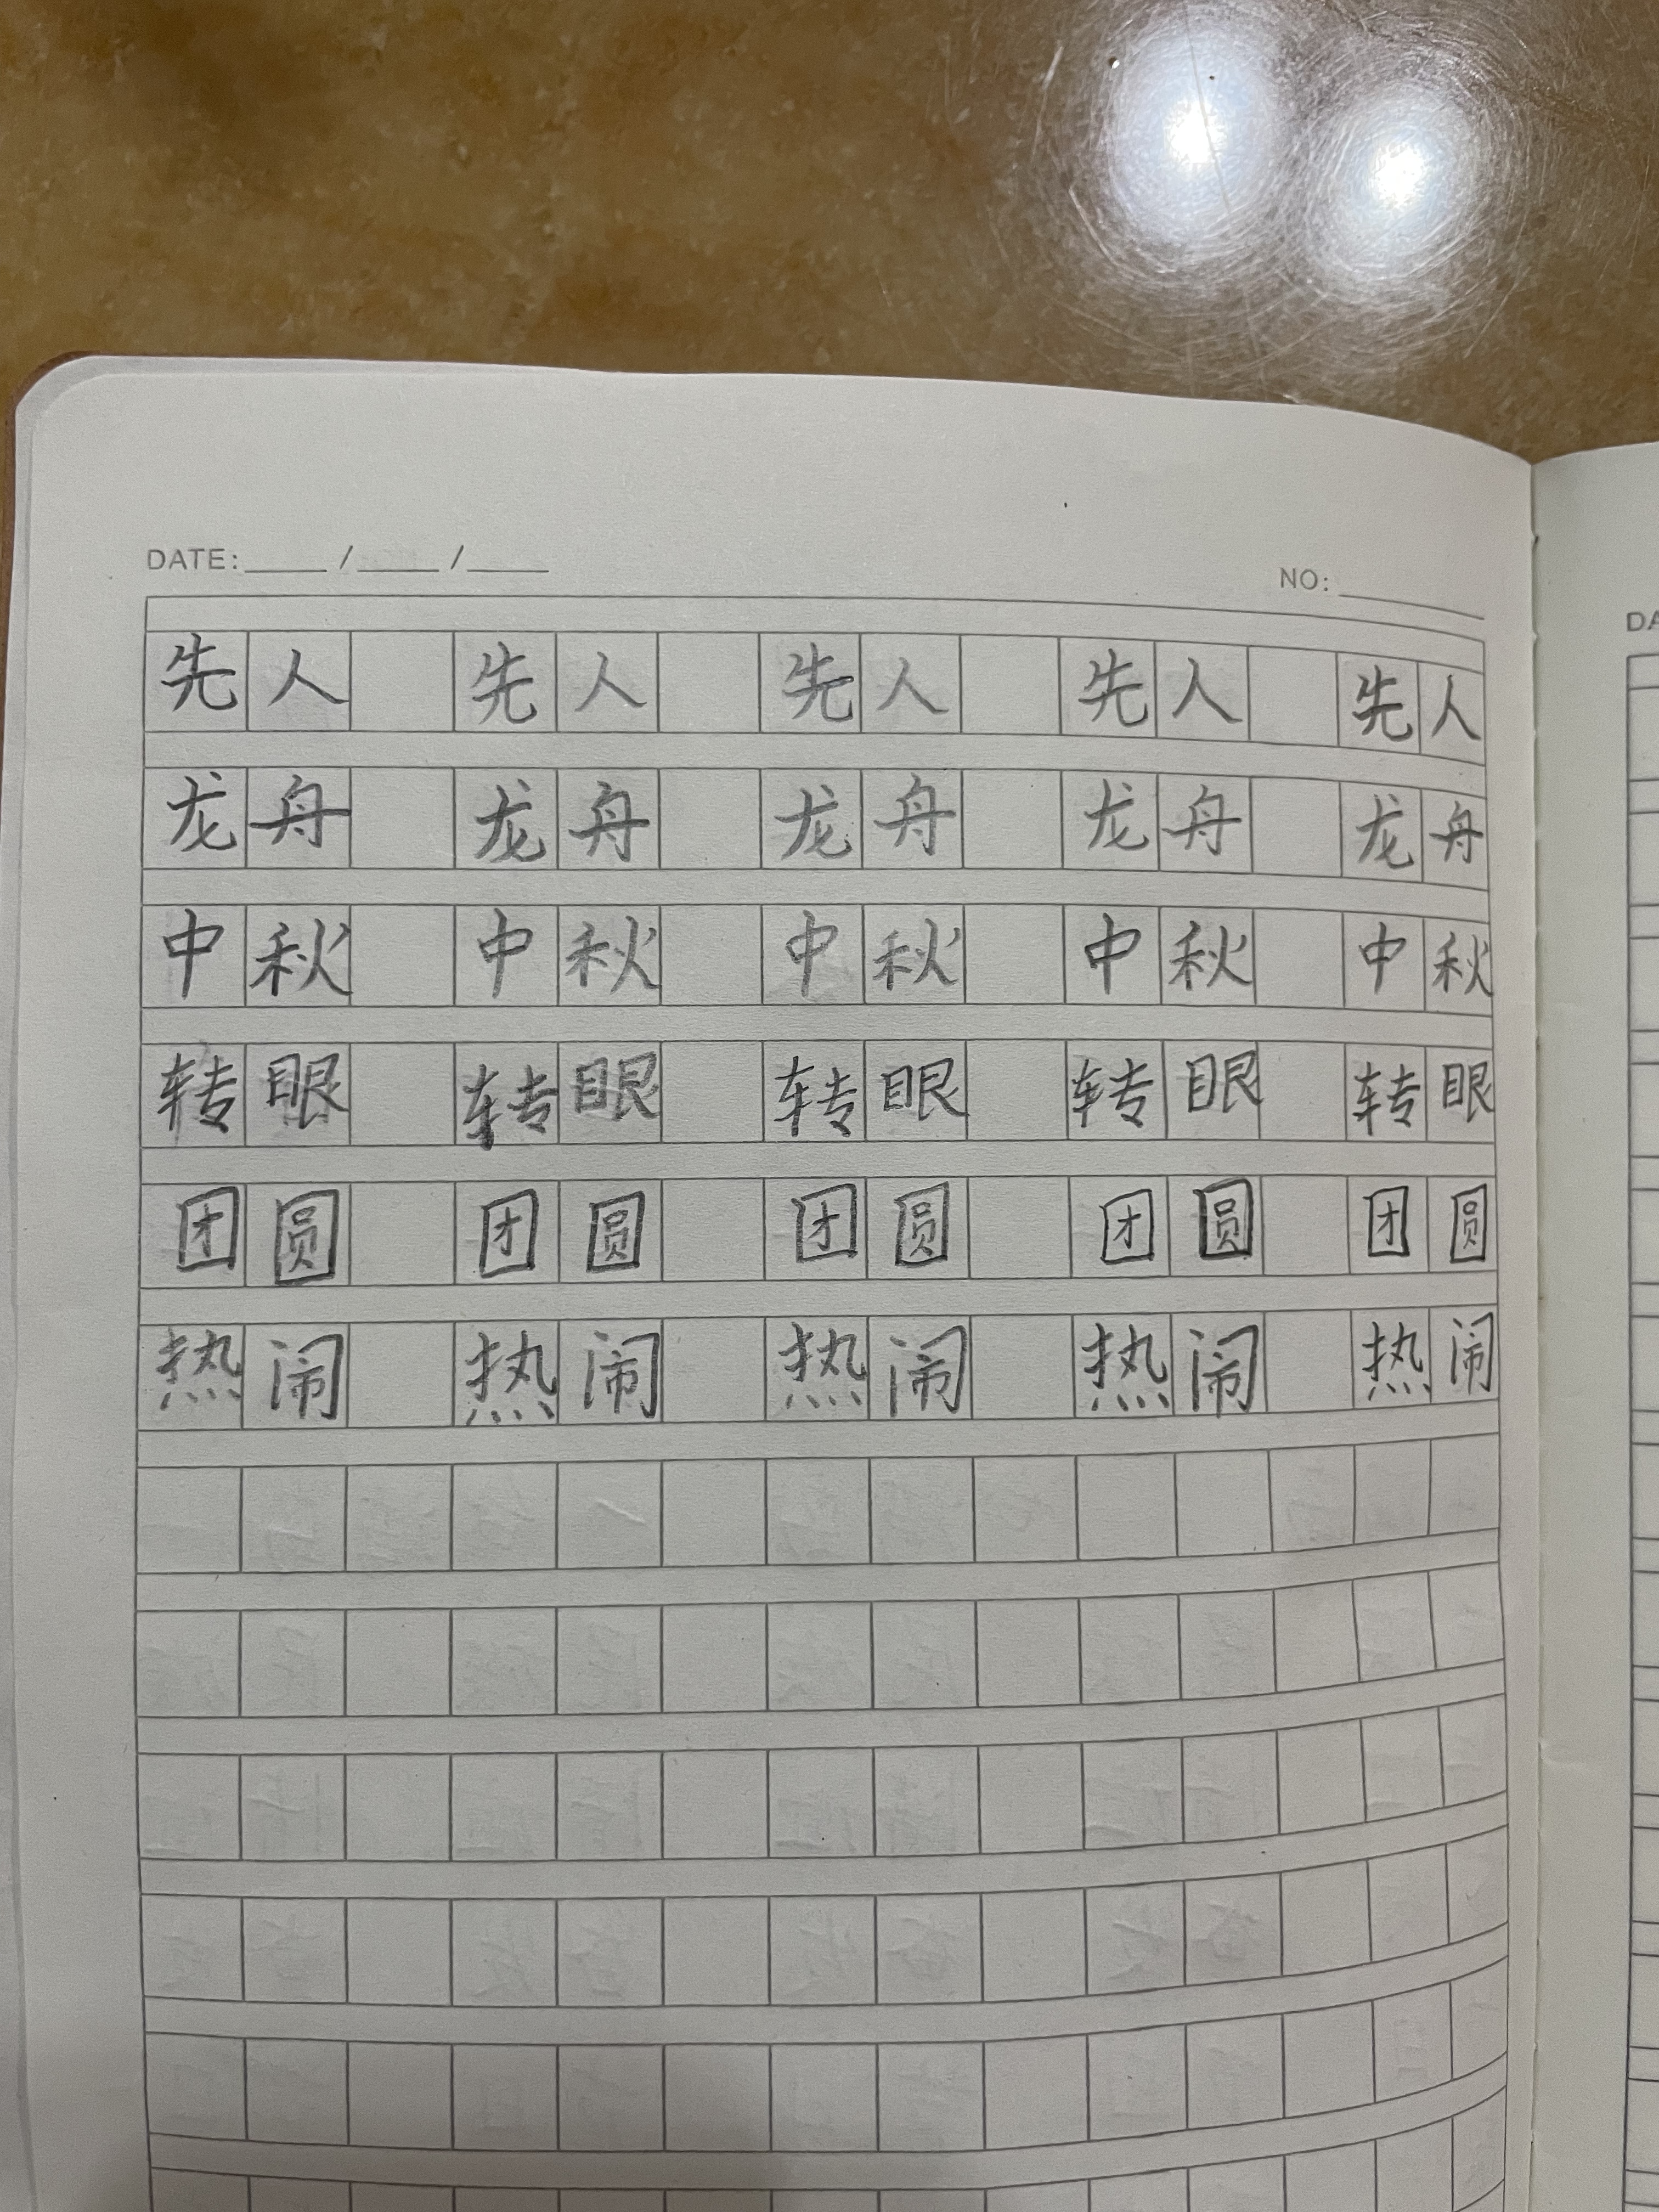 DATE:____/____/____
NO:______
先人 先人 先人 先人 先人
龙舟 龙舟 龙舟 龙舟 龙舟
中秋 中秋 中秋 中秋 中秋
转眼 转眼 转眼 转眼 转眼
团圆 团圆 团圆 团圆 团圆
热闹 热闹 热闹 热闹 热闹
DA